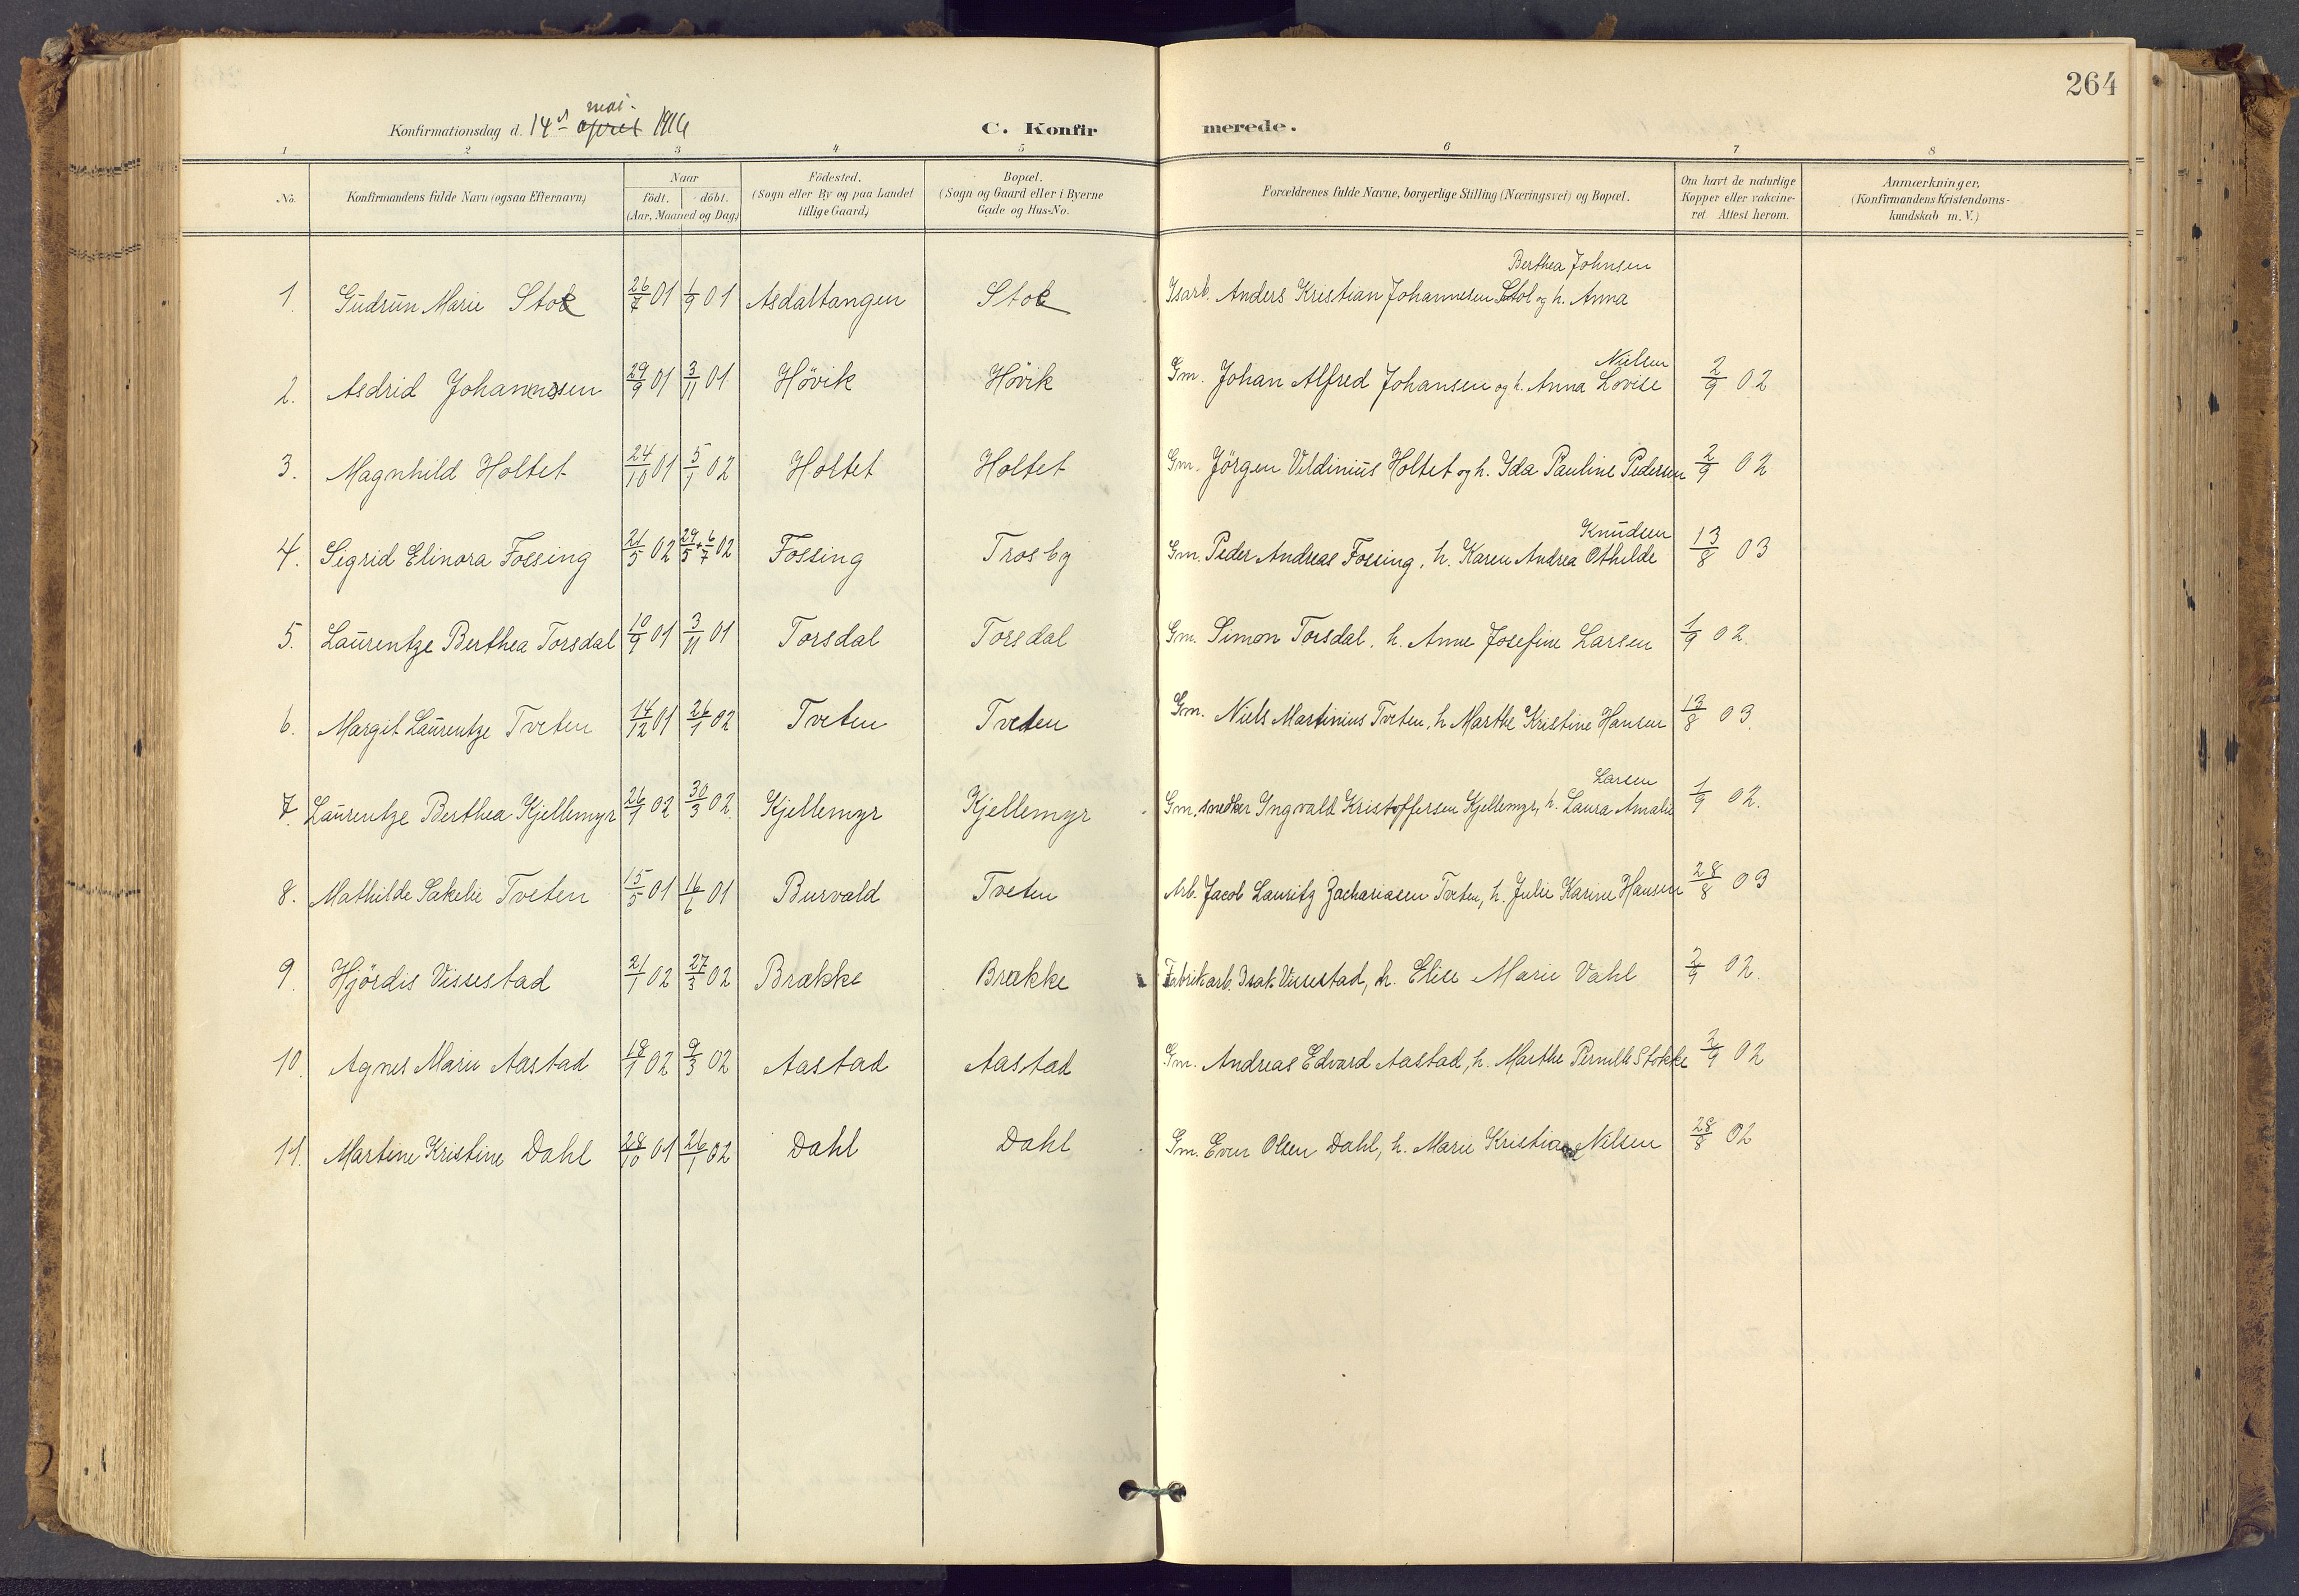 264
mai.
Konfirmationsdag d. 14de april 1916 C. Konfirmerede.
1 2 3 4 5 6 7 8
No. Konfirmandens fulde Navn (ogsaa Efternavn) Naar födt. döbt. (Aar, Maaned og Dag) Födested. (Sogn eller By og paa Landet tillige Gaard) Bopæl. (Sogn og Gaard eller i Byerne Gade og Hus-No. Forældrenes fulde Navne, borgerlige Stilling (Næringsvei) og Bopæl. Om havt de naturlige Kopper eller vakcineret Attest herom. Anmærkninger. (Konfirmandens Kristendomskundskab m. V.)
Berthea Johnsen
1. Gudrun Marie 26/7 01 1/9 01 Asdaltangen Anders Kristian Johannesen og h. Anna
Nielsen
2. Asdrid Johannesen 29/9 01 3/11 01 Hövik Hövik Gm. Johan Alfred Johansen og h. Anna Lovise 2/9 02
3. Magnhild Holtet 24/10 01 5/1 02 Holtet Holtet Gm. Jörgen Veldinius Holtet og h. Ida Pauline Pedersen 2/9 02
Knudsen
4. Sigrid Elinora Fossing 21/5 02 29/5 + 6/7 02 Fossing Trosby Gm. Peder Andreas Fossing, h. Karen Andrea Othilde 13/8 03
5. Laurentze Berthea Torsdal 10/9 01 3/11 01 Torsdal Torsdal Gm. Simon Torsdal, h. Anne Josefine Larsen 1/9 02.
6. Margit Laurentze Tveten 14/12 01 26/1 02 Tveten Tveten Gm. Niels Martinius Tveten, h Marthe Kristine Hansen 13/8 03.
Larsen
7. Laurentze Berthea Kjellemyr 26/1 02 30/3 02. Kjellemyr Kjellemyr Gm. snedker Ingvald Kristoffersen Kjellemyr, h. Laura Amalie 1/9 02.
8. Mathilde Sakelie Tveten 15/5 01 16/6 01 Burvald Tveten Arb. Jacob Lauritz Zachariasen Tveten, h. Julie Karine Hansen 28/8 03
9 Hjördis Vissestad 21/1 02 27/3 02 Brække Brække Fabrikarb. Isak Vissestad, h. Elise Marie Vahl 2/9 02.
10. Agnes Marie Aastad 18/1 02 9/3 02 Aastad Aastad Gm. Andreas Edvard Aastad, h. Marthe Pernille Stokke 2/9 02
11. Martine Kristine Dahl 28/10 01 26/1 02 Dahl Dahl Gm. Even Olsen Dahl, h. Marie Kristiane Nilsen 28/8 02